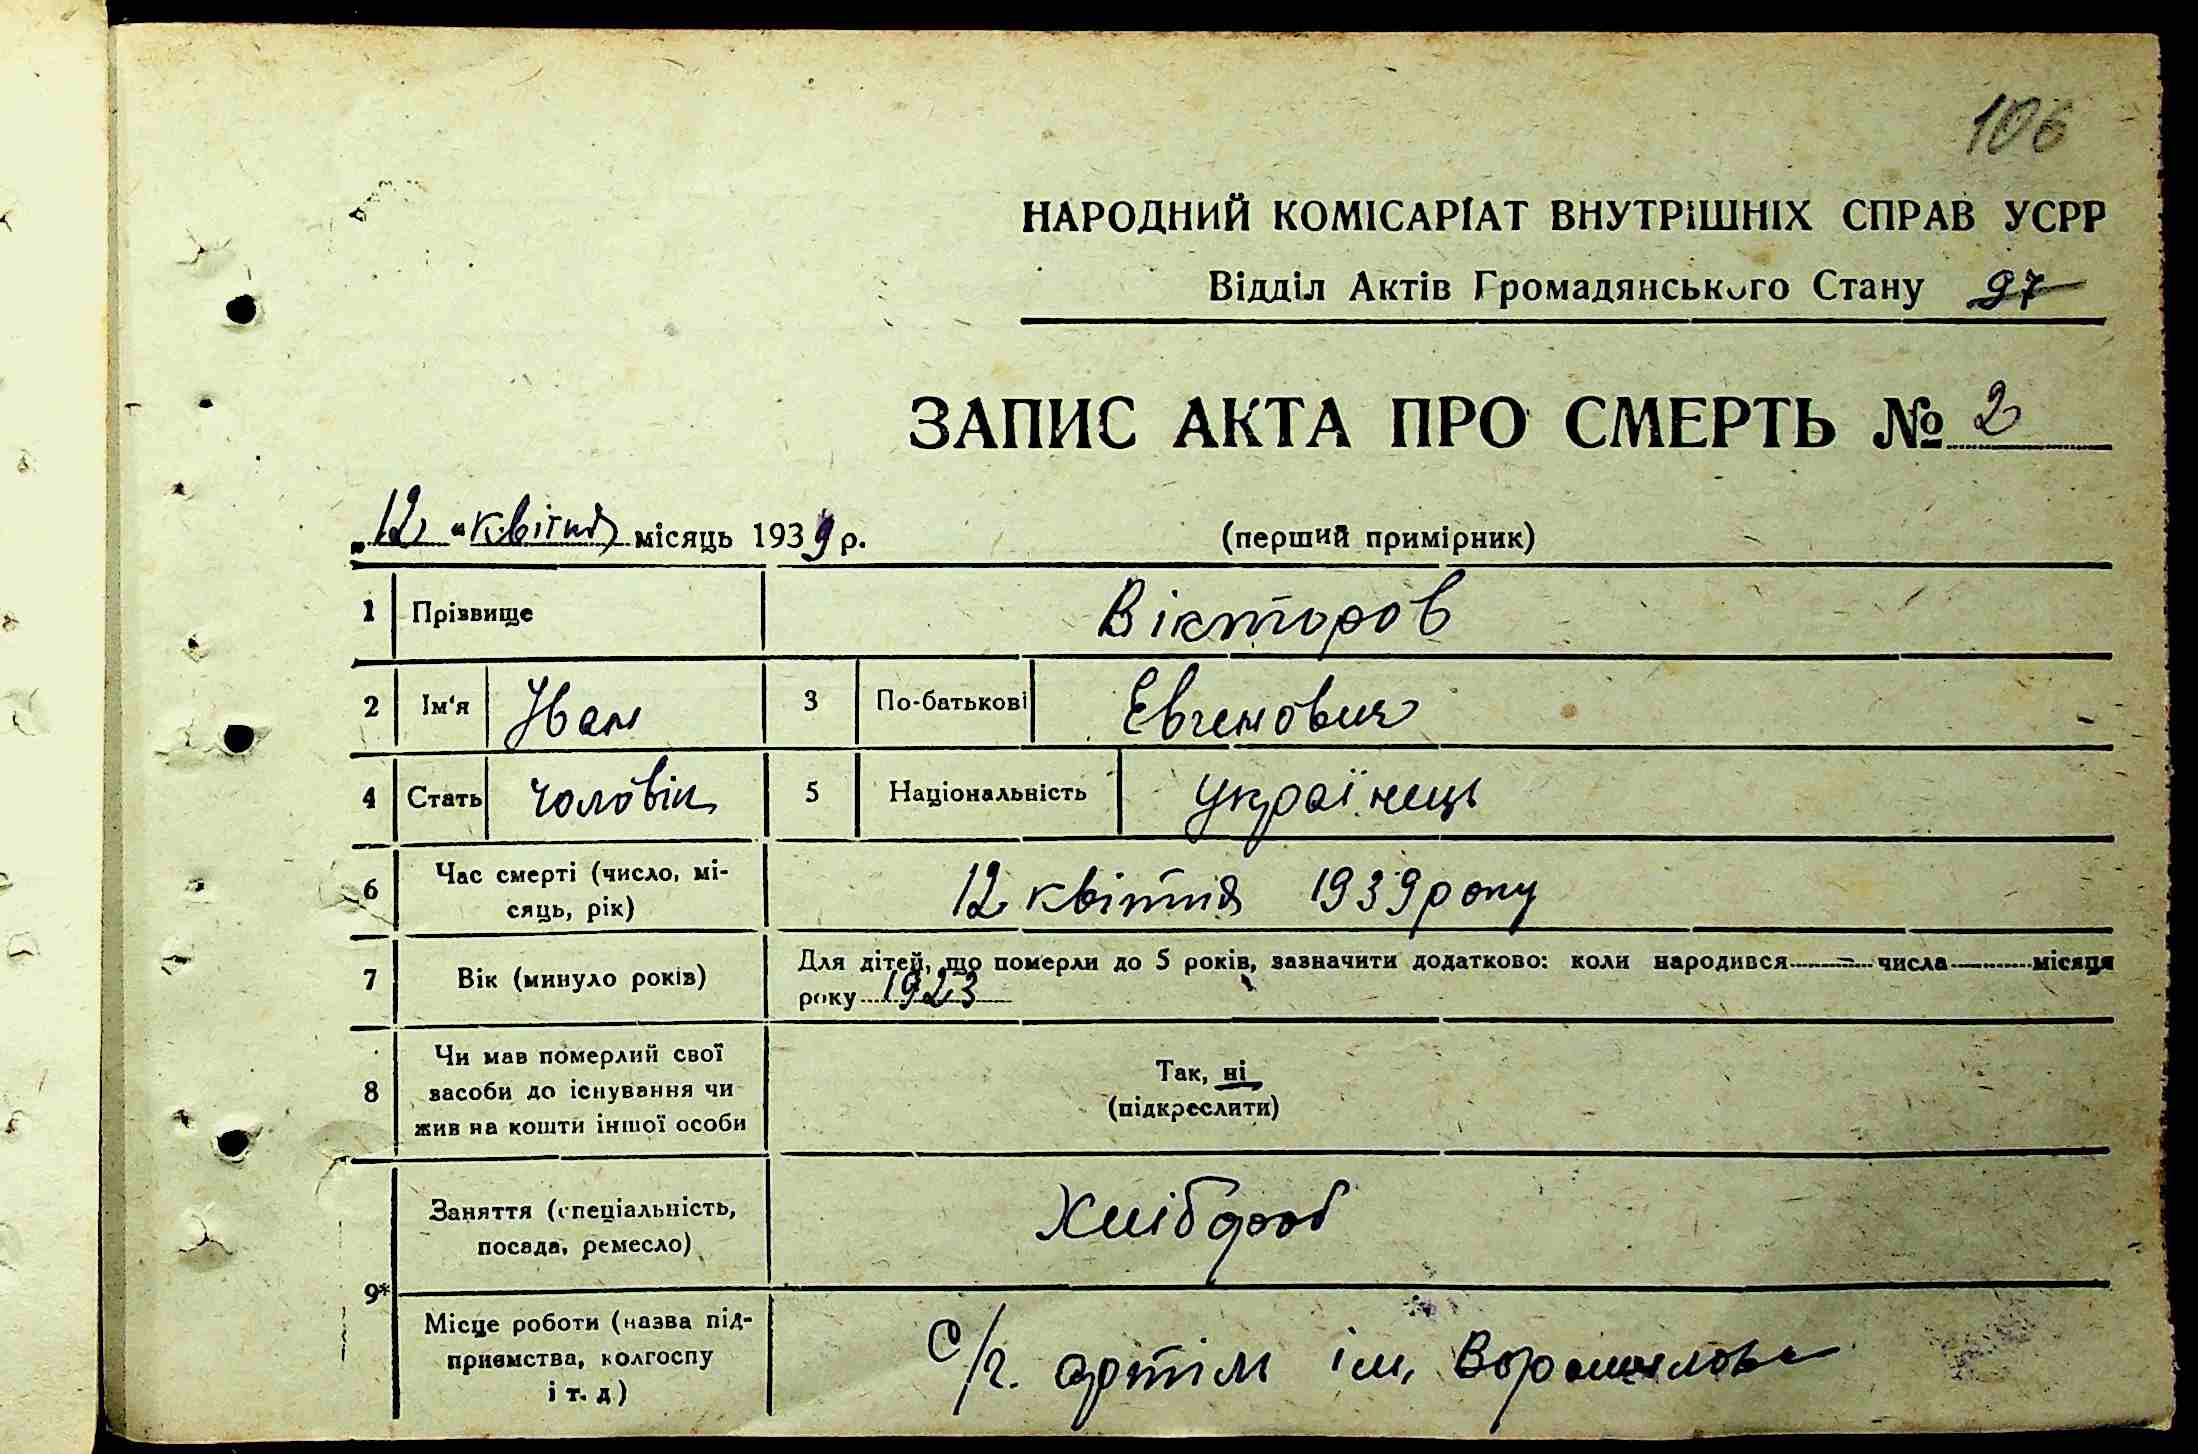 106
НАРОДНИЙ КОМІСАРІАТ ВНУТРІШНІХ СПРАВ УСРР
Відділ Актів Громадянського Стану 97
ЗАПИС АКТА ПРО СМЕРТЬ № 2
„12 “ квітня місяць 1939 р. (перший примірник)
1 Прізвище Вікторов
2 Ім'я Іван 3 По-батькові Евгенович
4 Стать чоловік 5 Національність українець
6 Час смерті (число, мі-
сяць, рік) 12 квітня 1939 року
7 Вік (минуло років) Для дітей, що померли до 5 років, зазначити додатково: коли народився — числа — місяця
року 1923
8 Чи мав померлий свої
засоби до існування чи
жив на кошти іншої особи
Так, ні
(підкреслити)
9* Заняття (спеціальність,
посада, ремесло) Хлібороб
Місце роботи (назва під-
приємства, колгоспу
і т. д) С/г. артіль ім. Ворошилова